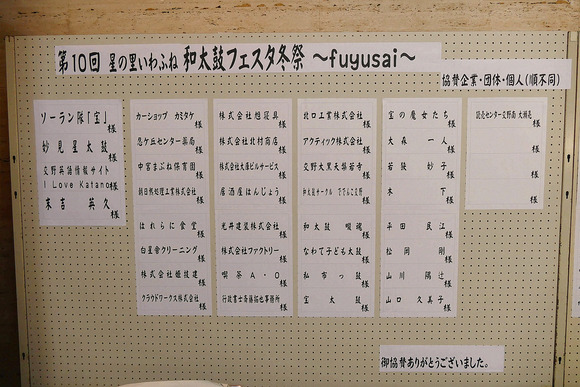 第10回 星の里いわふね 和太鼓フェスタ冬祭 ～fuyusai～
協賛企業・団体・個人(順不同)
ソーラン隊「宝」 様
妙見星太鼓 様
交野英語情報サイト
I Love Katano 様
末吉 英久 様
カーショップ カミタケ 様
忍ケ丘センター薬局 様
中宮まぶね保育園 様
朝日熱処理工業株式会社 様
はれらに食堂 様
白星舎クリーニング 様
株式会社姫技建 様
クラウドワークス株式会社 様
株式会社旭寝具 様
株式会社北村商店 様
株式会社大阪ビルサービス 様
居酒屋はんじょう 様
光井建装株式会社 様
株式会社ファクトリー 様
喫茶A・O 様
行政書士斉藤拓也事務所 様
北口工業株式会社 様
アクティック株式会社 様
交野大黒天梨若寺 様
和太鼓サークル ででんこ交野 様
和太鼓 颯魂 様
なわて子ども太鼓 様
私市っ鼓 様
宝太鼓 様
宝の魔女たち 様
大森 一人 様
若狭 妙子 様
木下 様
平田 民江 様
松岡 剛 様
山川 陽辻 様
山口 久美子 様
読売センター交野南 大瀬忠 様
御協賛ありがとうございました。